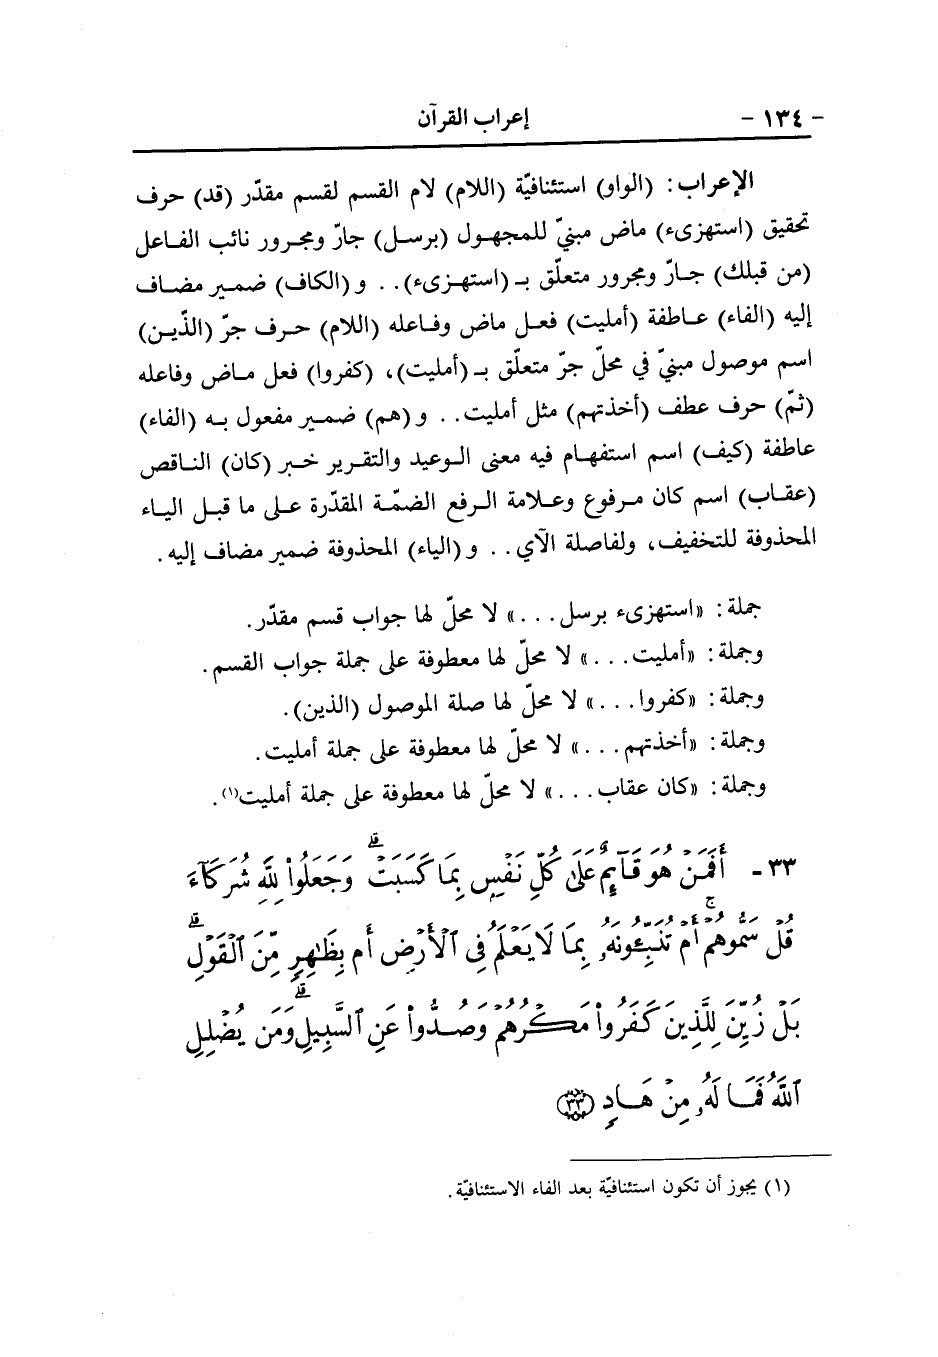 - ١٣٤ -
إعراب القرآن
الإعراب: (الواو) استئنافيّة (اللام) لام القسم لقسم مقدّر (قد) حرف
تحقيق (استهزىء) ماض مبنيّ للمجهول (برسل) جارّ ومجرور نائب الفاعل
(من قبلك) جارّ ومجرور متعلّق بـ (استهزىء).. و(الكاف) ضمير مضاف
إليه (الفاء) عاطفة (أمليت) فعل ماض وفاعله (اللام) حرف جرّ (الذّين)
اسم موصول مبنيّ في محلّ جرّ متعلّق بـ (أمليت)، (كفروا) فعل ماض وفاعله
(ثمّ) حرف عطف (أخذتهم) مثل أمليت.. و(هم) ضمير مفعول به (الفاء)
عاطفة (كيف) اسم استفهام فيه معنى الوعيد والتقرير خبر (كان) الناقص
(عقاب) اسم كان مرفوع وعلامة الرفع الضمّة المقدّرة على ما قبل الياء
المحذوفة للتخفيف، ولفاصلة الآي.. و(الياء) المحذوفة ضمير مضاف إليه.
جملة: «استهزىء برسل...» لا محلّ لها جواب قسم مقدّر.
وجملة: «أمليت...» لا محلّ لها معطوفة على جملة جواب القسم.
وجملة: «كفروا...» لا محلّ لها صلة الموصول (الذين).
وجملة: «أخذتهم...» لا محلّ لها معطوفة على جملة أمليت.
وجملة: «كان عقاب...» لا محلّ لها معطوفة على جملة أمليت(١).
٣٣ - أَفَمَنْ هُوَ قَآئِمٌ عَلَىٰ كُلِّ نَفْسٍۭ بِمَا كَسَبَتْ ۗ وَجَعَلُوا۟ لِلَّهِ شُرَكَآءَ
قُلْ سَمُّوهُمْ ۚ أَمْ تُنَبِّـُٔونَهُۥ بِمَا لَا يَعْلَمُ فِى ٱلْأَرْضِ أَم بِظَٰهِرٍۢ مِّنَ ٱلْقَوْلِ ۗ
بَلْ زُيِّنَ لِلَّذِينَ كَفَرُوا۟ مَكْرُهُمْ وَصُدُّوا۟ عَنِ ٱلسَّبِيلِ ۗ وَمَن يُضْلِلِ
ٱللَّهُ فَمَا لَهُۥ مِنْ هَادٍۢ ٣٣
(١) يجوز أن تكون استئنافيّة بعد الفاء الاستئنافيّة.